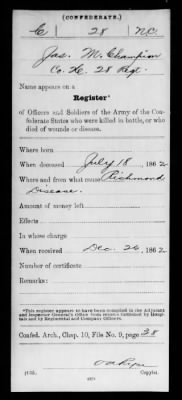 (CONFEDERATE.)
C 28 N.C.
Jas. M. Champion
Co. H, 28 Regt.
Name appears on a
Register*
of Officers and Soldiers of the Army of the Con-
federate States who were killed in battle, or who
died of wounds or disease.
Where born
When deceased July 18, 1862
Where and from what cause Richmond
Disease.
Amount of money left
Effects
In whose charge
When received Dec. 26, 1862
Number of certificate
Remarks:
*This register appears to have been compiled in the Adjutant
and Inspector General's Office from returns furnished by Hospi-
tals and by Regimental and Company Officers.
Confed. Arch., Chap. 10, File No. 9, page 38
Copyist.